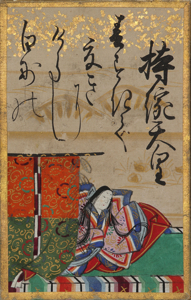 持統天皇
春すきて
夏きに
けらし
白妙の